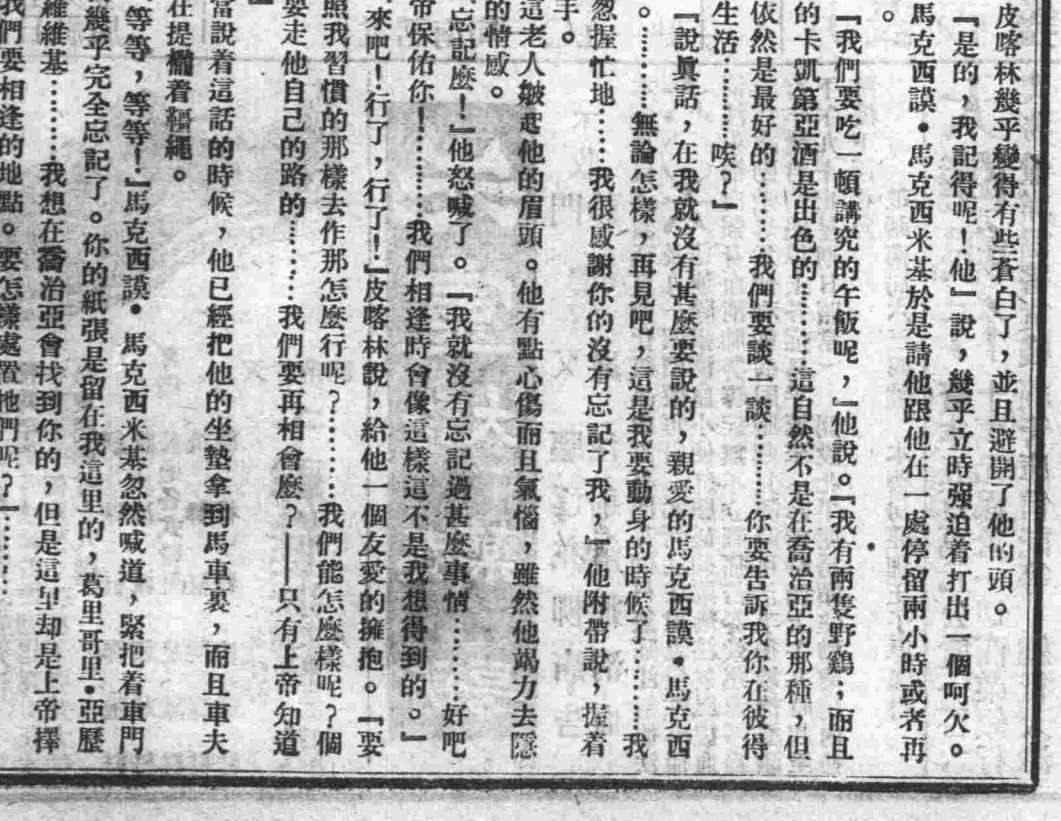 皮喀林幾乎變得有些蒼白了，並且避開了他的頭。
『是的，我記得呢！他』說，幾乎立時强迫着打出一個呵欠。
馬克西謨·馬克西米基於是請他跟他在一處停留兩小時或者再
。
『我們要吃一頓講究的午飯呢，』他說。『我有兩隻野鷄；而且
的卡凱第亞酒是出色的…………這自然不是在喬治亞的那種，但
依然是最好的…………我們要談一談…………你要告訴我你在彼得
生活…………唉？』
『說眞話，在我就沒有甚麼要說的，親愛的馬克西謨·馬克西
。…………無論怎樣，再見吧，這是我要動身的時候了…………我
忽握忙地……我很感謝你的沒有忘記了我，』他附帶說，握着
手。
這老人皺起他的眉頭。他有點心傷而且氣惱，雖然他竭力去隱
的情感。
忘記麼！』他怒喊了。『我就沒有忘記過甚麼事情…………好吧
帝保佑你！…………我們相逢時會像這樣這不是我想得到的。』
來吧！行了，行了！』皮喀林說，給他一個友愛的擁抱。『要
照我習慣的那樣去作那怎麼行呢？…………我們能怎麼樣呢？個
要走他自己的路的…………我們要再相會麼？——只有上帝知道
』
當說着這話的時候，他已經把他的坐墊拿到馬車裏，而且車夫
在提櫹着韁繩。
等等，等等！』馬克西謨·馬克西米基忽然喊道，緊把着車門
幾乎完全忘記了。你的紙張是留在我這里的，葛里哥里·亞歷
維維基…………我想在喬治亞會找到你的，但是這里却是上帝擇
我們要相逢的地點。要怎樣處置牠們呢？』…………